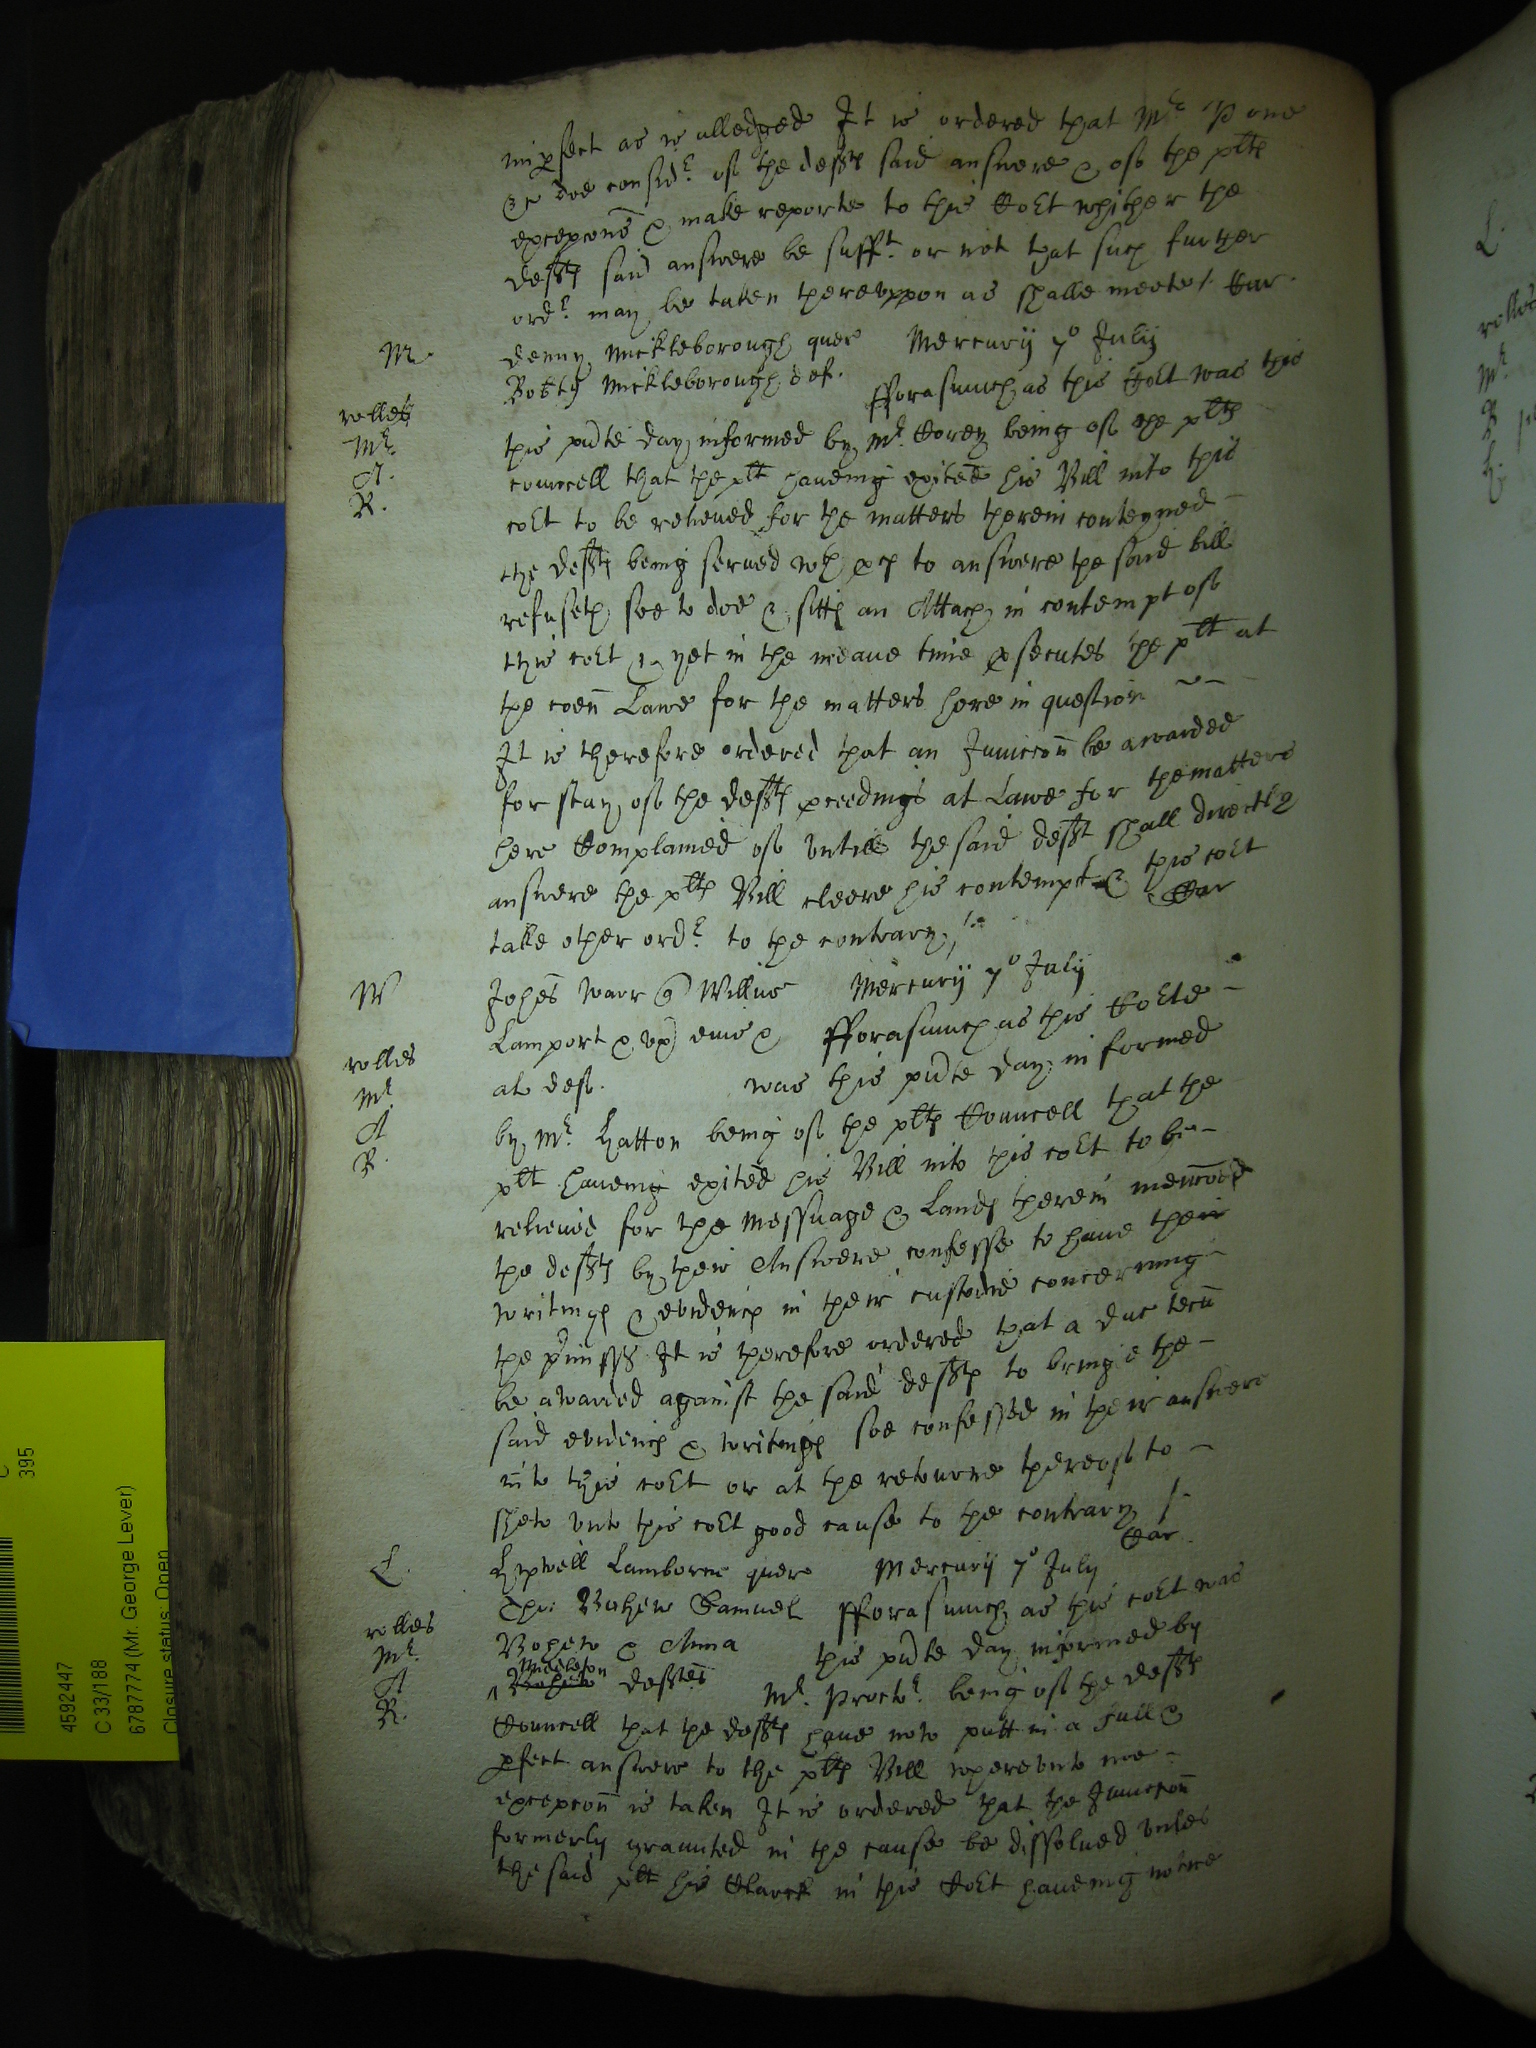 imp̱fect as is alledged It is ordered that Mr Pone
doe considr of the defts said answere & of the plts
excepc̃ons & make reporte to this Cort whither the
defts said answere be sufft. or not that such further
ordr. may be taken thereuppon as shalbe meete /. Car.
M. denny Mickleborough quer Mercurij 7o July
Robtj Mickleborough def. fforasmuch as this Cort was this
rolles this pñte day informed by Mr. Corey being of the plts
Mr. councell that the plt haueing exited his Bill into this
A. cort to be relieued for the matters therein conteyned
R. the defts being serued wth p̱cs to answere the said bill
refuseth soe to doe & sitts an Attach in contempt of
this cort & yet in the meane time p̱secutes the plt at
the coem̃ Lawe for the matters here in question
It is therefore ordered that an Iuncc̃on be awarded
for stay of the defts p̱ceedings at Lawe for the matters
here Complained of untill the said deft shall directly
answere the plts Bill cleere his contempt & this cort
take other ordr. to the contrary /. Car
W Johes Warr q Willus Mercurij 7o July
Lamport & ux eius & fforasmuch as this Corte
rolles al def. was this pñte day informed
Mr by Mr. Hatton being of the plts Councell that the
A plt haueing exited his Bill into this cort to be
R. relieued for the Messuage & Lands therein menc̃oed
the defts by their Answere confesse to haue their
writings & evidencs in their custodie concerning
the p̱misss It is therefore ordered that a duc tecũ
be awarded against the said defts to bringe the
said evidencs & writings soe confessed in their answere
into this cort or at the retourne thereof to
shew unto this cort good cause to the contrary /.
Car.
L. Hopwell Lamborne quer Mercurij 7o July
Chr: Bohew Samuel fforasmuch as this cort was
rolles Bohew & Anna this pñte day informed by
Mr. Middleton
A. defts Mr. Proctr. being of the defts
R. Councell that the defts haue now putt in a full &
p̱fect answere to the plts Bill whereunto noe
excepc̃on is taken It is ordered that the Iuncc̃on
formerly graunted in the cause be dissolued unles
the said plt his Clarck in this Cort haueing notice
C
395
4592447
C 33/188
6787774 (Mr. George Lever)
Closure status: Open